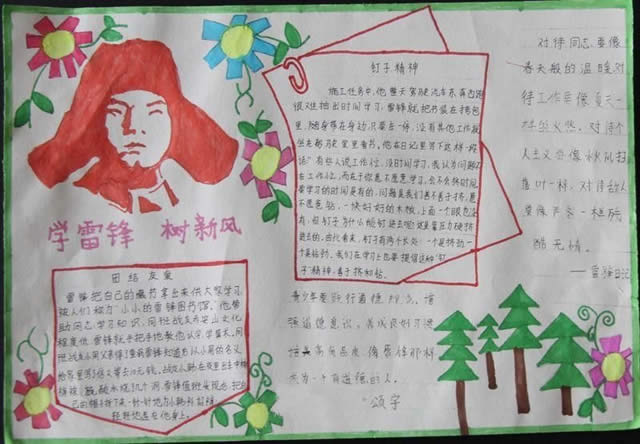 学雷锋 树新风
团结友爱
雷锋把自己的藏书拿出来供大家学习,
被人们称为"小小的雷锋图书馆"。他帮
助同志学习知识,同班战友乔安山文化
程度低,雷锋就手把手地教他认字,学算术。同
班战友小周父亲得了重病,雷锋知道后以小周的名义
给家里写了信又寄去10元钱。战友小韩在夜里出车中棉
裤被硫酸水烧了几个洞,雷锋值班回来,把自
己的帽子拆下来一针一针地为小韩补好裤,
轻轻地盖在他身上。
钉子精神
施工任务中,他整天驾驶汽车东奔西跑,
很难抽出时间学习,雷锋就把书装在挎包
里,随身带在身边,只要车一停,没有其他工作,就
坐在驾驶室里看书。他在日记里写下这样一段
话:"有些人说工作忙,没时间学习,我认为问题不
在工作忙,而在于你愿不愿意学习,会不会挤时间。
要学习的时间是有的,问题是我们善不善于挤,愿
不愿意钻。一块好好的木板,上面一个眼也没
有,但钉子为什么能钉进去呢?这就是靠压力硬挤
进去的。由此看来,钉子有两个长处:一个是挤劲,一
个是钻劲。我们在学习上也要提倡这种"钉
子"精神,善于挤和钻。
对待同志要像
春天般的温暖,对
待工作要像夏天一
对待个
人主义要像秋风扫
落叶一样,对待敌人
要像严冬一样残
酷无情。
——雷锋日记
青少年要践行道德
增
强道德意识,养成良好习惯
培养高尚品质,像雷锋那样
成为一个有道德的人。
颂宇